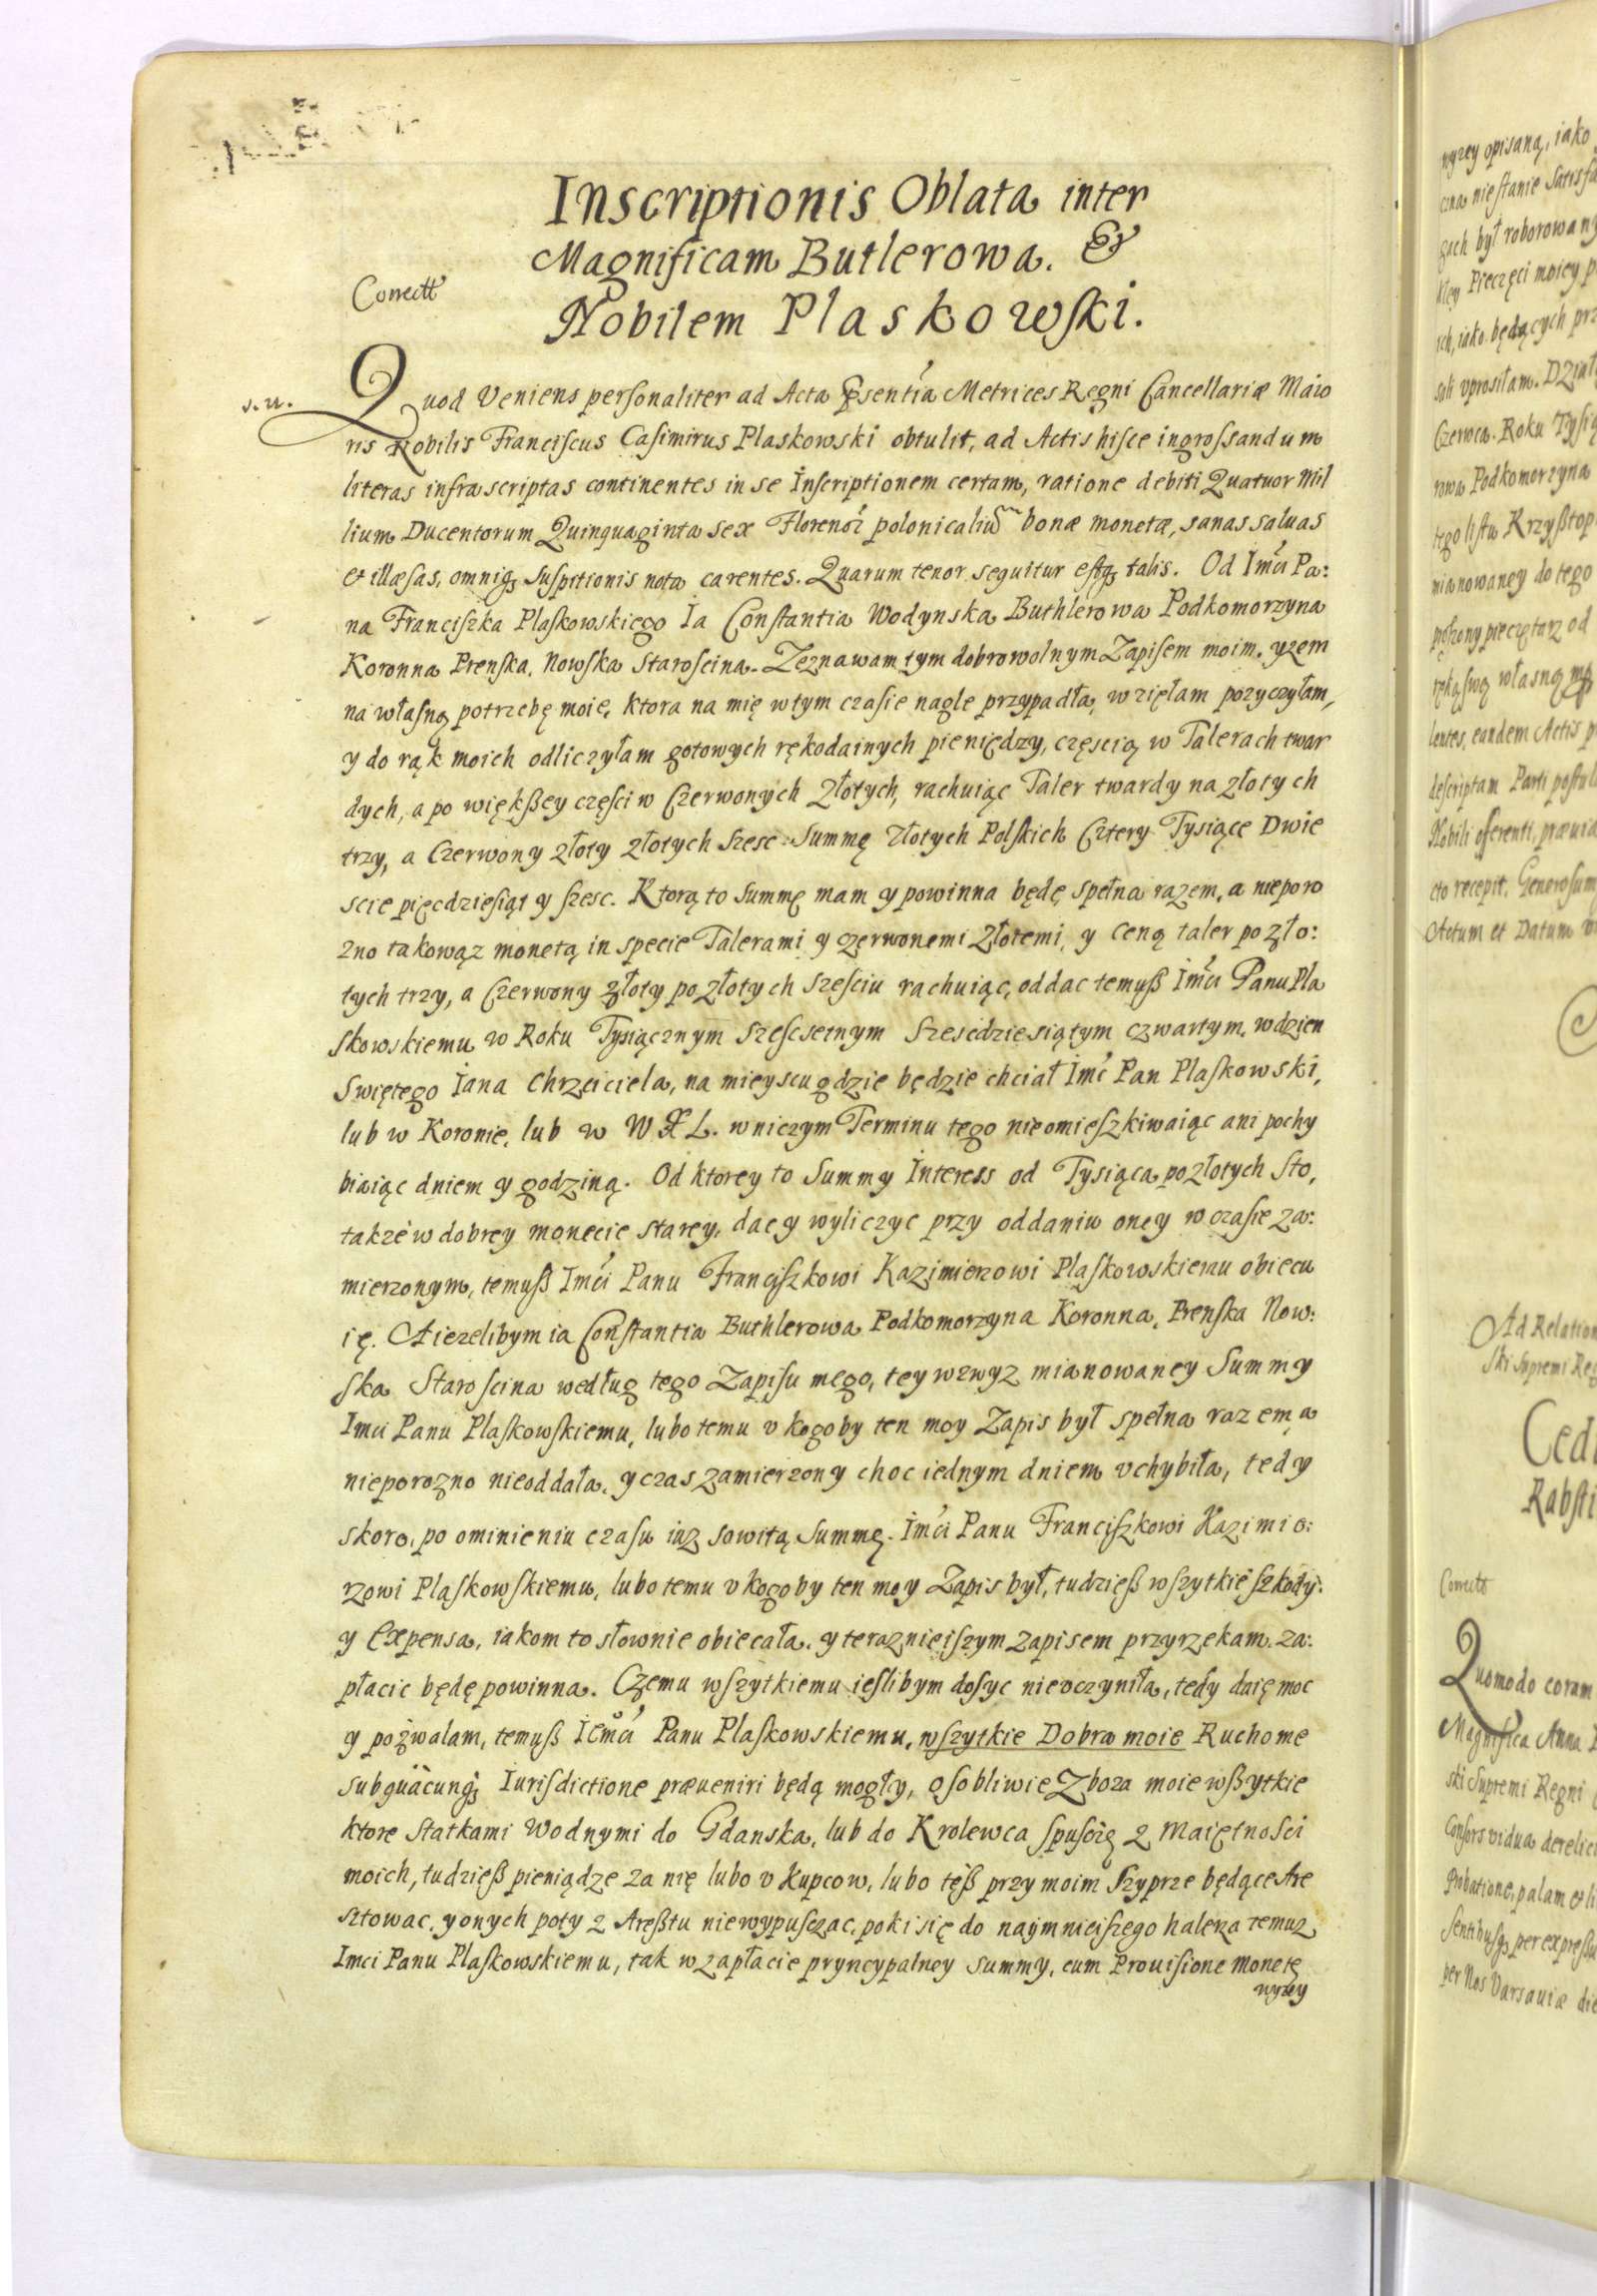 Inscriptionis Oblata inter
Magnificam Butlerowa. &
Correctt
Nobilem Plaskowſki.
s. n.
Quod Veniens perſonaliter ad Acta p̃sentia Metrices Regni Cancellariæ Maio
ris Nobilis Franciſcus Caſimirus Plaskowski obtulit, ad Actis hiſce ingroſſandum
literas infra scriptas continentes in se Inſcriptionem certam, ratione debiti Quatuor Mil
lium Ducentorum Quinquaginta sex Florenoꝝ polonicaliũ bonæ monetæ, sanas saluas
et illæſas, omniqȝ suſpitionis nota carentes. Quarum tenor sequitur estqȝ talis. Od Imci Pa:
na Franciſzka Plaſkowskiego Ia Conſtantia Wodynska Buthlerowa Podkomorzyna
Koronna Prenſka, Nowſka Staroscina. Zeznawam tym dobrowolnym Zapiſem moim, yzem
na własną potrzebę moię, ktora na mię w tym czaſie nagle przypadła, wzięłam pozyczyłam,
y do rąk moich odliczyłam gotowych rękodainych pieniędzy, częscią w Talerach twar
dych, a po więkßey częſci w Czerwonych Złotych, rachuiąc Taler twardy na złotych
trzy, a Czerwony złoty złotych Szesc. Summę Złotych Polſkich Cztery Tysiące Dwie
scie pięcdzieſiąt y ſzesc. Ktorą to Summę mam y powinna będę spełna razem, a nieporo
zno takowąz monetą in specie Talerami y czerwonemi Złotemi, y ceną taler po zło:
tych trzy, a Czerwony złoty po złotych szeſciu rachuiąc, oddac temuß Imci Panu Pla
skowskiemu w Roku Tysiącznym szeſcsetnym Szescdziesiątym czwartym, w dzien
Swiętego Iana Chrzciciela, na mieyscu gdzie będzie chciał Imc Pan Plaſkowski,
lub w Koronie, lub w W X L. w niczym Terminu tego nieomieſzkiwaiąc ani pochy
biaiąc dniem y godziną. Od ktorey to Summy Interess od Tysiąca po złotych Sto,
takze w dobrey monecie starey, dac y wyliczyc przy oddaniu oney w czaſie za:
mierzonym, temuß Imci Panu Franciſzkowi Kazimierzowi Plaſkowskiemu obiecu
ię. A iezelibym ia Conſtantia Buthlerowa Podkomorzyna Koronna, Prenſka Now:
ſka Staroscina według tego Zapiſu mego, tey wzwyz mianowaney Summy
Imci Panu Plaſkowſkiemu, lubo temu v kogoby ten moy Zapis był spełna razem a
nieporozno nieoddała, y czas zamierzony choc iednym dniem vchybiła, tedy
skoro, po ominieniu czaſu iuz sowitą Summę. Imci Panu Franciſzkowi Kazimie:
rzowi Plaſkowſkiemu, lubo temu v kogoby ten moy Zapis był, tudzieß wſzytkie ſzkody:
y Expensa, iakom to słownie obiecała, y teraznieiſzym zapisem przyrzekam, za:
płacic będę powinna. Czemu wſzytkiemu ieſlibym doſyc nievczyniła, tedy daię moc
y pozwalam, temuß Ieᵒmci Panu Plaſkowskiemu, wſzytkie Dobra moie Ruchome
sub quacunqȝ Iurisdictione præueniri będą mogły, osobliwie Zboza moie wßytkie
ktore Statkami Wodnymi do Gdanska, lub do Krolewca ſpuſczę z Maiętnosci
moich, tudzieß pieniądze za nię lubo v kupcow, lubo teß przy moim Szyprze będące Are
sztowac, y onych poty z Areßtu niewypuſczac, poki się do naymnieiſzego halerza temuz
Imci Panu Plaſkowskiemu, tak w zapłacie pryncypalney summy, cum Prouiſione monetę
wyzey
wyzey opisaną, iako
czna nieſtanie Satisfa
gach był roborowany
kłey Pieczęci moiey p
ich, iako będących prz
sali vprosiłam. Dział
Czerwca. Roku Tysią
rowa Podkomorzyna
tego liſtu Krzyßtop
mianowaney do tego
proſzony pieczętarz od
ręką swą własną mp
lentes, eandem Actis p
deſcriptam Parti poſtul
Nobili offerenti, præuia
cto recepit. Generoſum
Actum et Datum
Ad Relation
ſki Supremi Reg
Cedi
Rabſti
Correctt
Quomodo coram
Magnifica Anna
ski Supremi Regni
Conſors vidua derelict
Probatione, palam et li
ſentibusqȝ per expreſſu
per Nos Varsauiæ die